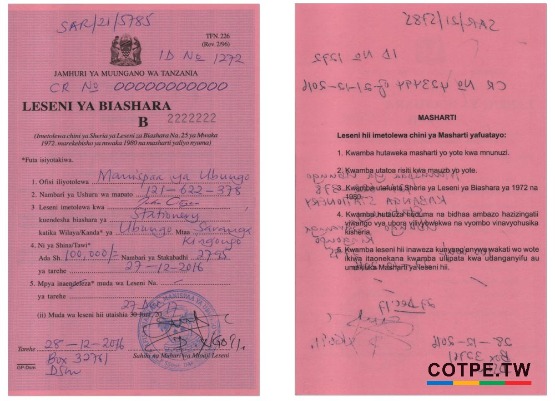 SAR/21/5785
TFN. 226
(Rev 2/96)
ID No 1272
JAMHURI YA MUUNGANO WA TANZANIA
CR No 00000000000
LESENI YA BIASHARA
B 2222222
(Imetolewa chini ya Sheria ya Leseni za Biashara Na. 25 ya Mwaka
1972 marekebisho ya mwaka 1980 na masharti yaliyo nyuma)
*Futa isiyotakiwa.
1. Ofisi iliyotolewa Manispaa ya Ubungo
2. Nambari ya Usharu wa mapato 121-622-378
3. Leseni imetolewa kwa
kuendesha biashara ya Stationery
katika Wilaya/Kanda* ya Ubungo Mtaa Saranga
Kingongo
4. Ni ya Shina/Tawi*
Ada Sh. 100,000/= Nambari ya Stakabadhi
ya tarehe 27-12-2016
5. Mpya inaendeleza* muda wa Leseni Na.
ya tarehe
27 DEC 17
(ii) Muda wa leseni hii utaishia 30 Juni, 20
Tarehe 28-12-2016
Box 32761
Dsm
Sahihi na Muhuri wa Mtoaji Leseni
GP-Dsm
SAR/21/5785
ID No 1272
CR No 423494 of 21-12-2016
MASHARTI
Leseni hii imetolewa chini ya Masharti yafuatayo:
1. Kwamba hutaweka masharti yo yote kwa mnunuzi.
2. Kwamba utatoa risiti kwa mauzo yo yote.
3. Kwamba utakuta Sheria ya Leseni ya Biashara ya 1972 na
1980.
4. Kwamba hutauza huduma na bidhaa ambazo hazizingatii
viwango vya ubora vilivyowekwa na vyombo vinavyohusika
kisheria.
5. Kwamba leseni hii inaweza kunyang'anywa wakati wo wote
ikiwa itaonekana kwamba ulipata kwa udanganyifu au
umekiuka Masharti ya leseni hii.
27 DEC 17
28-12-2016
Box 32761
COTPE.TW